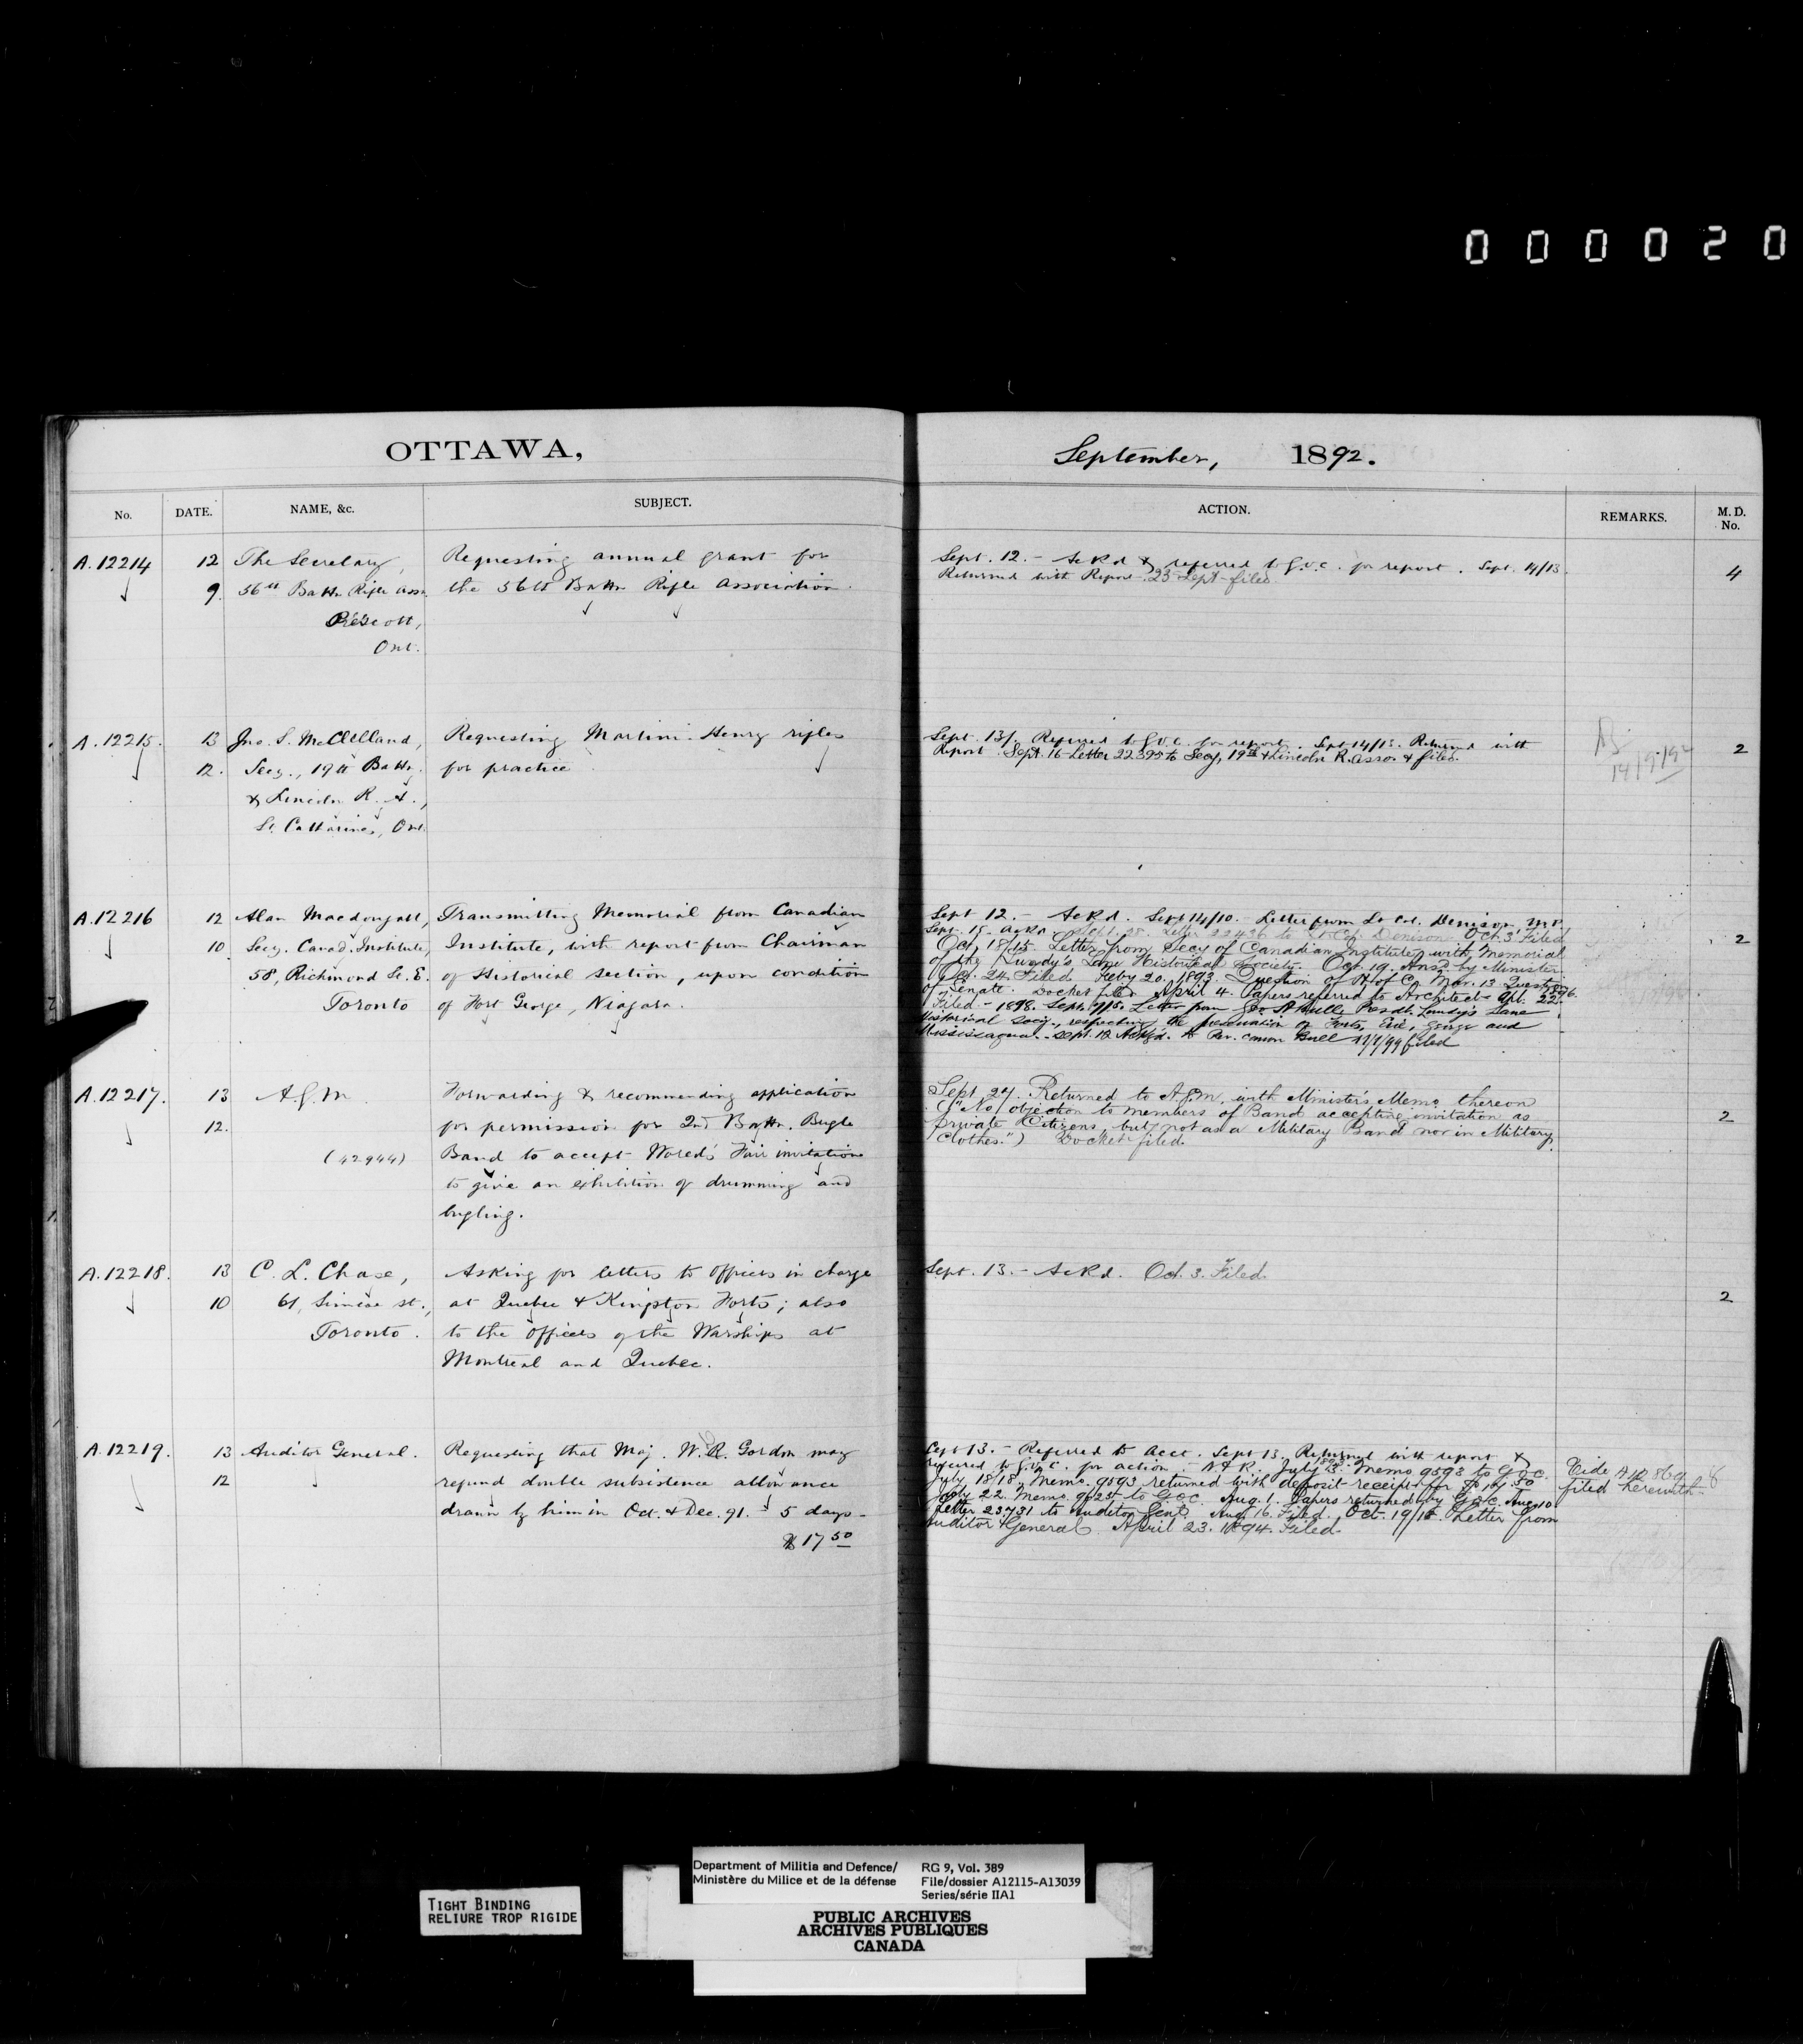 000020
OTTAWA,
September, 1892.
No. DATE. NAME, &c. SUBJECT. ACTION. REMARKS. M. D. No.
A. 12214 12 The Secretary, Requesting annual grant for
9. 56th Battn Rifle Assn. the 56th Battn Rifle Association.
Prescott,
Ont.
Sept. 12. - Ackd & referred to G.O.C. for report. Sept. 14/13.
Returned with Report. 23 Sept filed.
4
A. 12215. 13 Jno. S. McClelland, Requesting Martini-Henry rifles
12. Secy., 19th Battn. for practice
& Lincoln R. A.,
St. Catharines, Ont.
Sept. 13/. Referred to G.O.C. for report. Sept 14/13. Returned with
Report. Sept. 16 Letter 22395 to Secy, 19th & Lincoln R. Asso. & filed.
14/9/92
2
A. 12216 12 Alan Macdougall, Transmitting Memorial from Canadian
10 Secy. Canad. Institute, Institute, with report from Chairman
58, Richmond St. E. of Historical section, upon condition
Toronto of Fort George, Niagara.
Sept 12. - Ackd. Sept 14/10. - Letter from Lt Col. Denison, M.P.
Sept. 15. Ackd. Sept. 28. Letter 22436 to Lt Col Denison. Oct. 3. Filed
Oct. 18/15 Letter from Secy of Canadian Institute, with Memorial
of the Lundy's Lane Historical Society. Oct. 19. Ansd. by Minister.
Oct. 24. Filed. Feby 20, 1893. Question of H. of C. Mar. 13. Question
of Senate. Docket filed April 4. Papers referred to Architect Apl. 22. 1896.
Filed. - 1898. Sept. 9/15. Letter from Geo. A. Bull, Presdt. Lundy's Lane
Historical Socy., respecting the preservation of Forts, Erie, George and
Mississagua. Sept. 12 Ackgd. to Rev. Canon Bull 11/1/99 filed
2
A. 12217. 13 A.G.M. Forwarding & recommending application
12. for permission for 2nd Battn. Bugle
(42944) Band to accept World's Fair invitation
to give an exhibition of drumming and
bugling.
Sept 24. Returned to A.G.M. with Minister's Memo thereon
("No objection to members of Band accepting invitation as
Private Citizens, but not as a Military Band nor in Military
Clothes.") Docket filed.
2
A. 12218. 13 C. L. Chase, Asking for letters to officers in charge
10 61, Simcoe st., at Quebec & Kingston Forts; also
Toronto. to the officers of the Warships at
Montreal and Quebec.
Sept. 13. - Ackd. Oct. 3. Filed.
2
A. 12219. 13 Auditor General. Requesting that Maj. W. R. Gordon may
12 refund double subsistence allowance
drawn by him in Oct. & Dec. 91. - 5 days -
$17 50
Sept 13. - Referred to Acct. Sept 13. Returned with report &
referred to G.O.C. for action. - N.F.R. July 13. 1893 Memo 9593 to G.O.C.
July 18/18. Memo. 9593 returned with deposit receipt for
July 22. Memo. 9625 to G.O.C. Aug. 1. Papers returned by G.O.C. Aug. 10
Letter 23731 to Auditor Genl. Aug. 16. Filed. Oct. 19/18. Letter from
Auditor General. April 23. 1894. Filed.
Vide A12869
filed herewith.
TIGHT BINDING
RELIURE TROP RIGIDE
Department of Militia and Defence/
Ministère du Milice et de la défense
RG 9, Vol. 389
File/dossier A12115-A13039
Series/série IIA1
PUBLIC ARCHIVES
ARCHIVES PUBLIQUES
CANADA